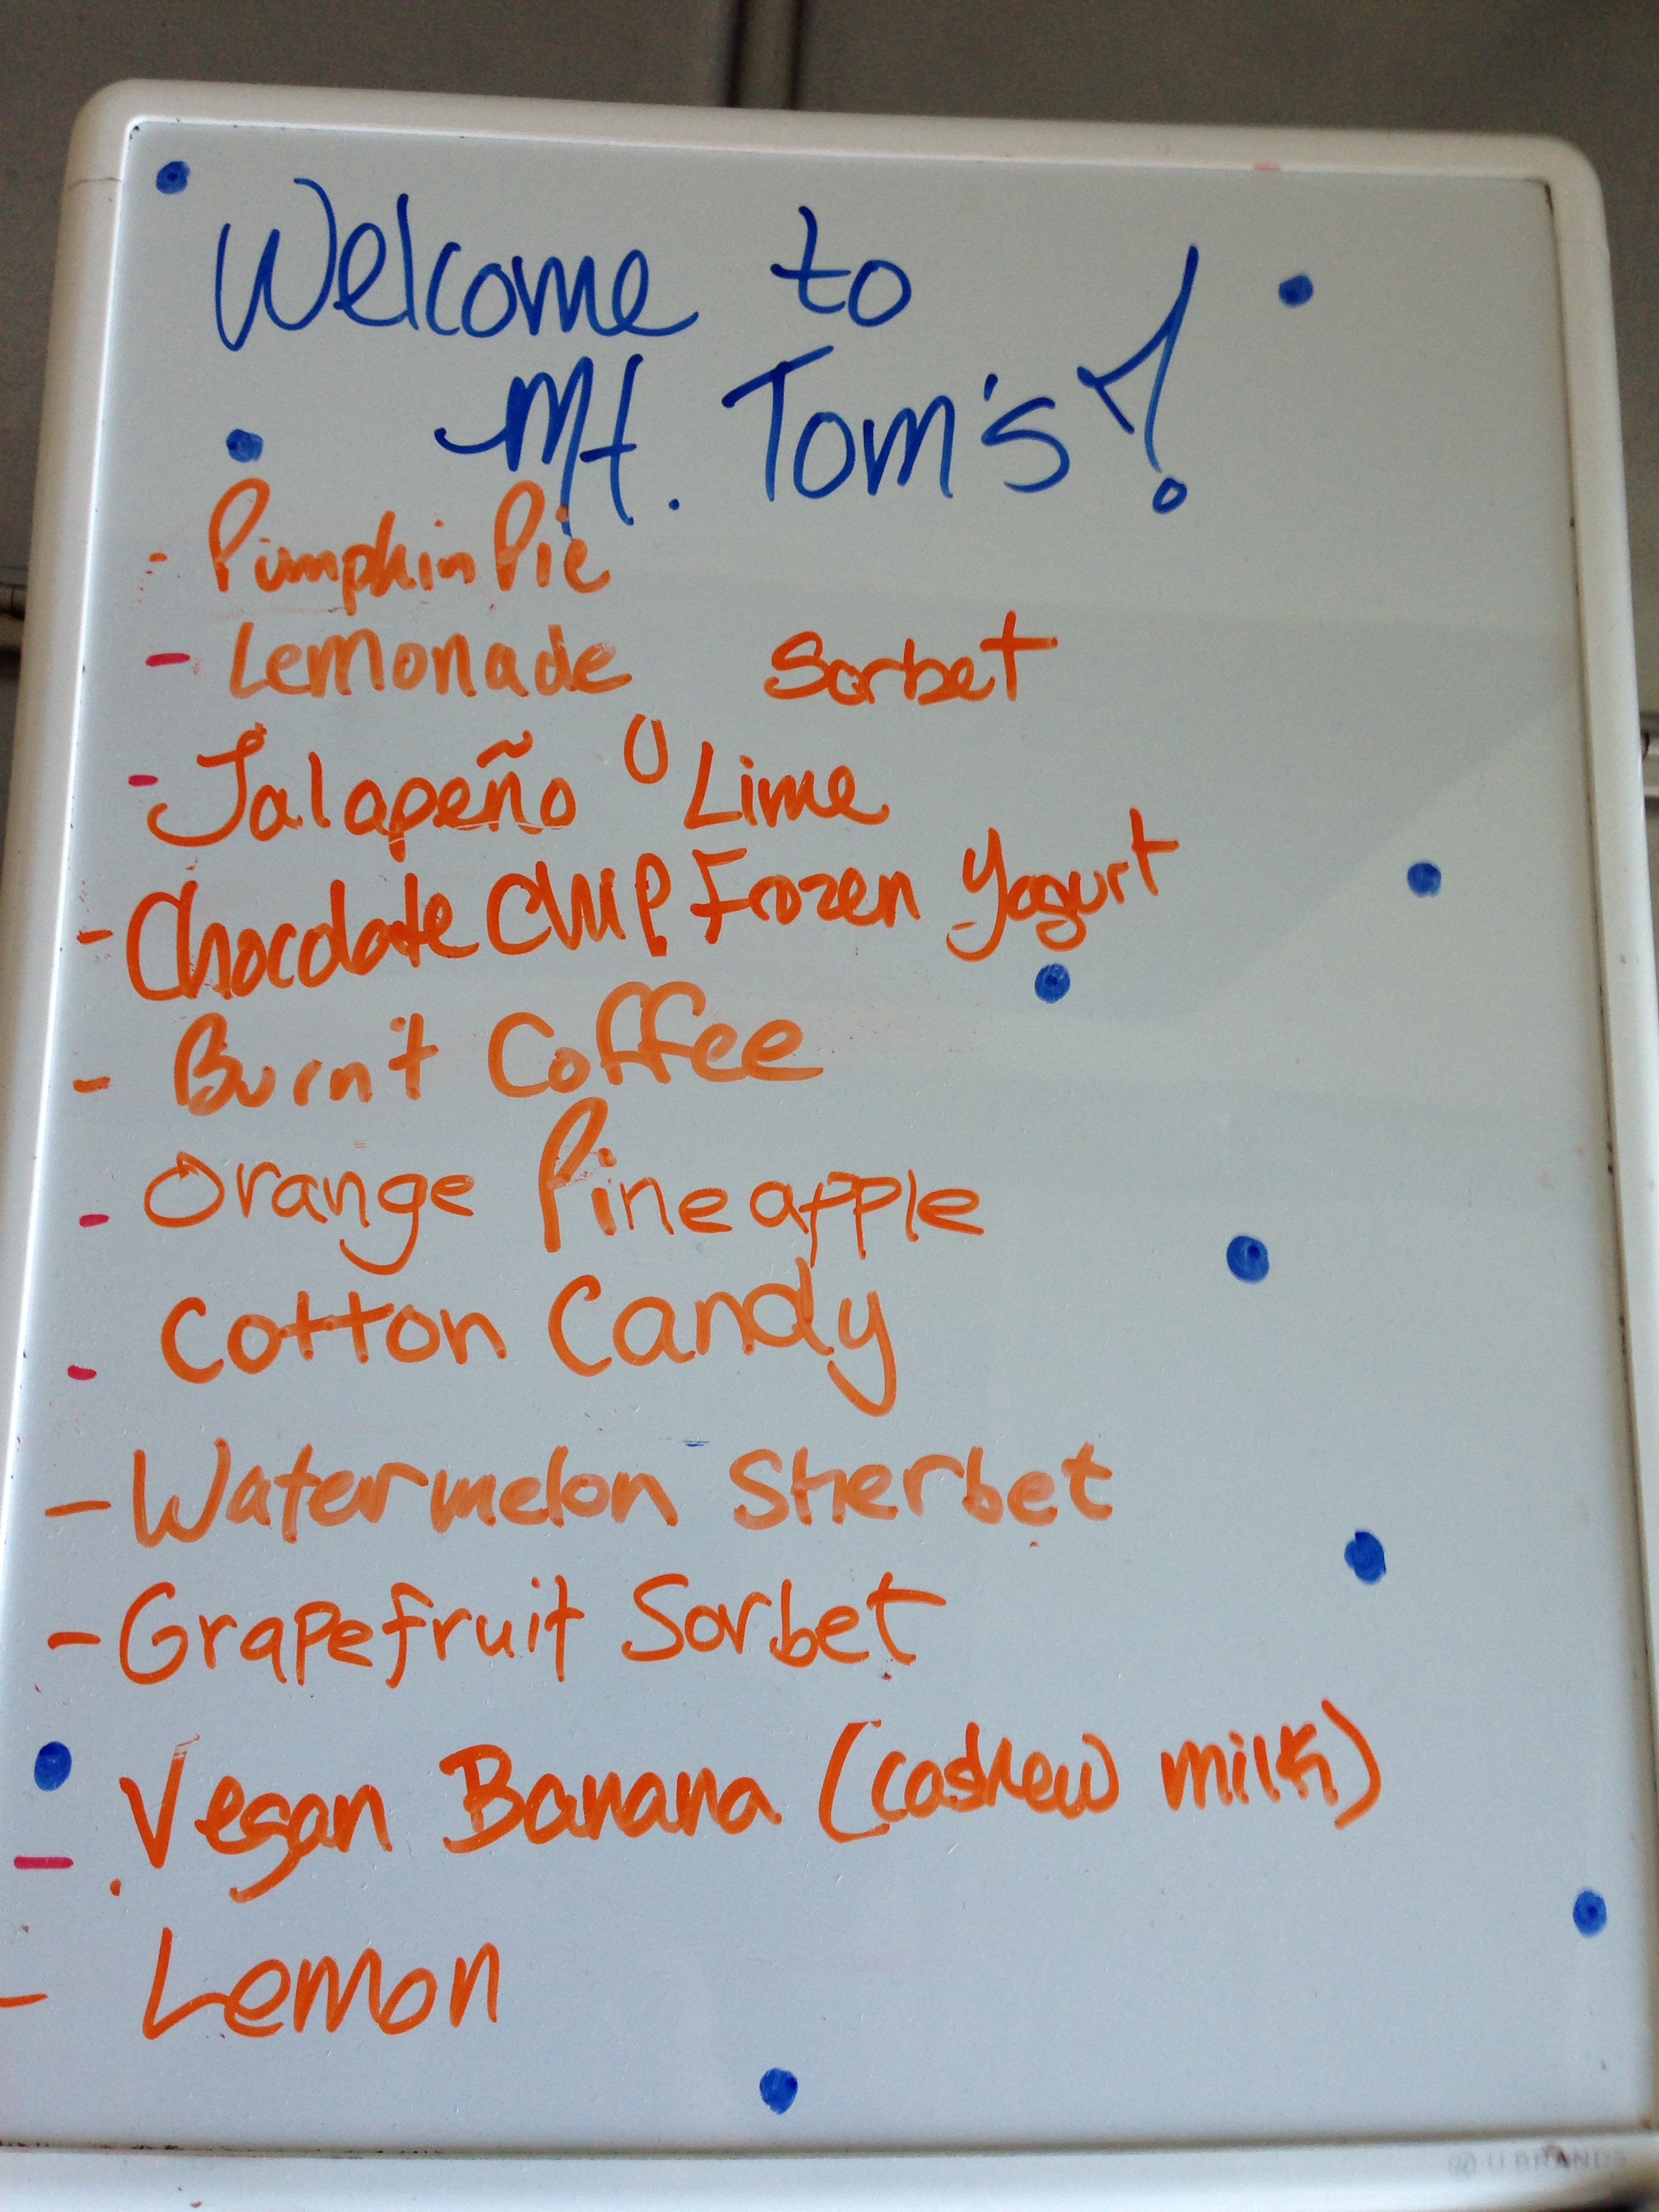 Welcome to
Mt. Tom's!
- Pumpkin Pie
- Lemonade Sorbet
- Jalapeño Lime
- Chocolate Chip Frozen Yogurt
- Burnt Coffee
- Orange Pineapple
- Cotton Candy
- Watermelon Sherbet
- Grapefruit Sorbet
- Vegan Banana (cashew milk)
- Lemon
U BRANDS